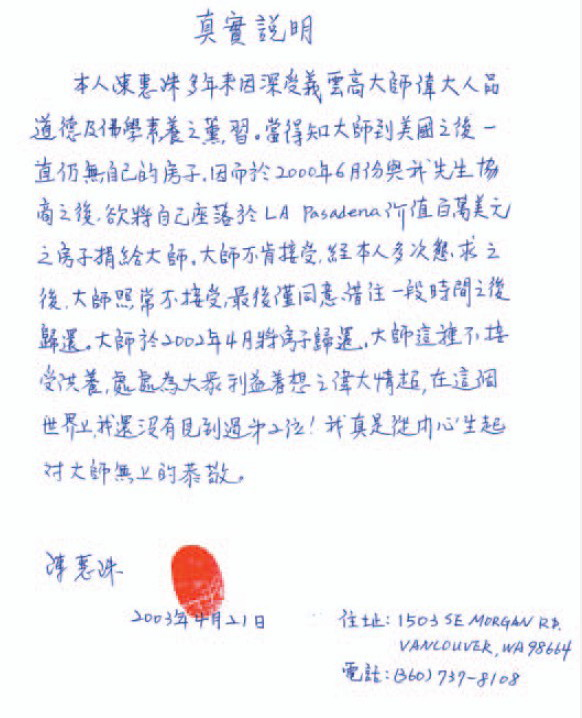 真實說明
本人陳惠姝多年来因深受義雲高大師偉大人品
道德及佛學素養之薰習。當得知大師到美國之後一
直仍無自己的房子,因而於2000年6月份與我先生協
商之後,欲將自己座落於LA Pasadena价值百萬美元
之房子捐給大師。大師不肯接受,經本人多次懇求之
後,大師照常不接受,最後僅同意借住一段時間之後
歸還。大師於2002年4月將房子歸還。大師這種不接
受供養,處處為大眾利益着想之偉大情超,在這個
世界上,我還沒有見到過第2位!我真是從内心生起
对大師無上的恭敬。
陳惠姝
2003年4月21日
住址:1503 SE MORGAN RD.
VANCOUVER, WA 98664
電話:(360) 737-8108